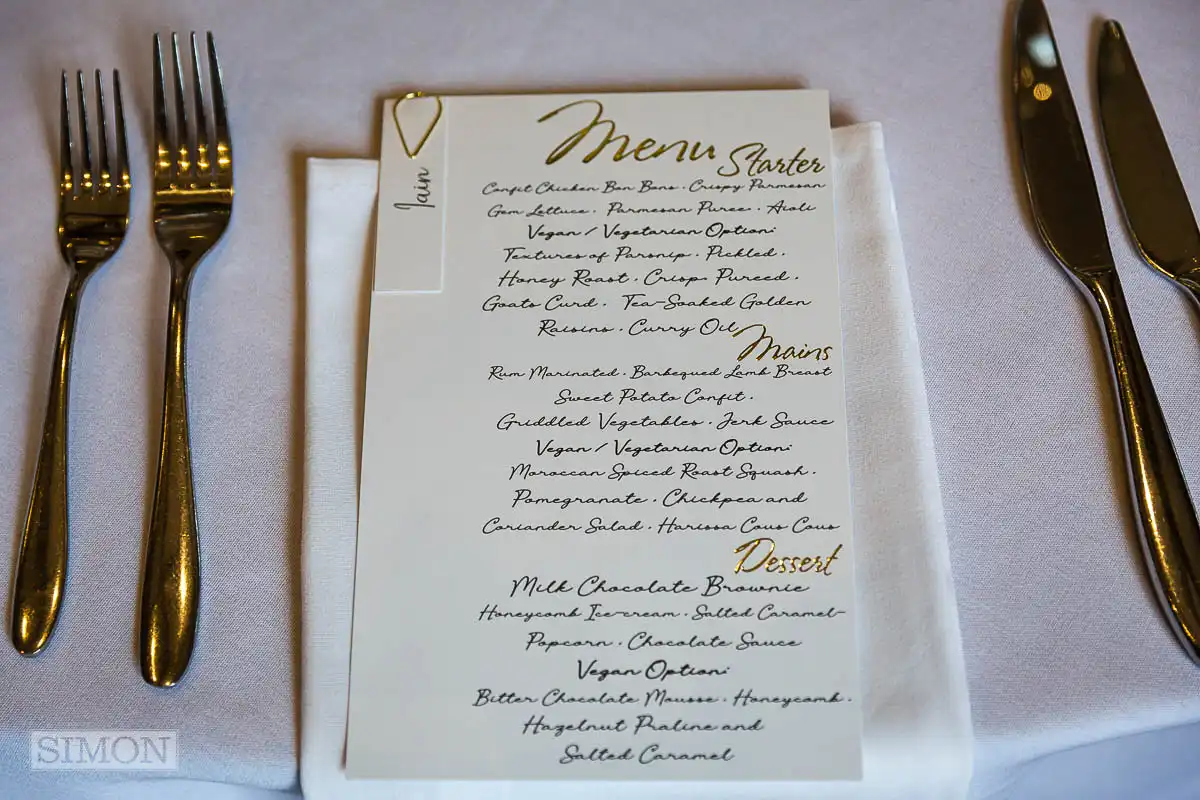 Iain
Menu
Starter
Confit Chicken Bon Bons · Crispy Parmesan
Gem Lettuce · Parmesan Puree · Aioli
Vegan / Vegetarian Option:
Textures of Parsnip · Pickled ·
Honey Roast · Crisp · Pureed ·
Goats Curd · Tea-Soaked Golden
Raisins · Curry Oil
Mains
Rum Marinated · Barbequed Lamb Breast
Sweet Potato Confit ·
Griddled Vegetables · Jerk Sauce
Vegan / Vegetarian Option:
Moroccan Spiced Roast Squash ·
Pomegranate · Chickpea and
Coriander Salad · Harissa Cous Cous
Dessert
Milk Chocolate Brownie
Honeycomb Ice-cream · Salted Caramel-
Popcorn · Chocolate Sauce
Vegan Option:
Bitter Chocolate Mousse · Honeycomb ·
Hazelnut Praline and
Salted Caramel
SIMON